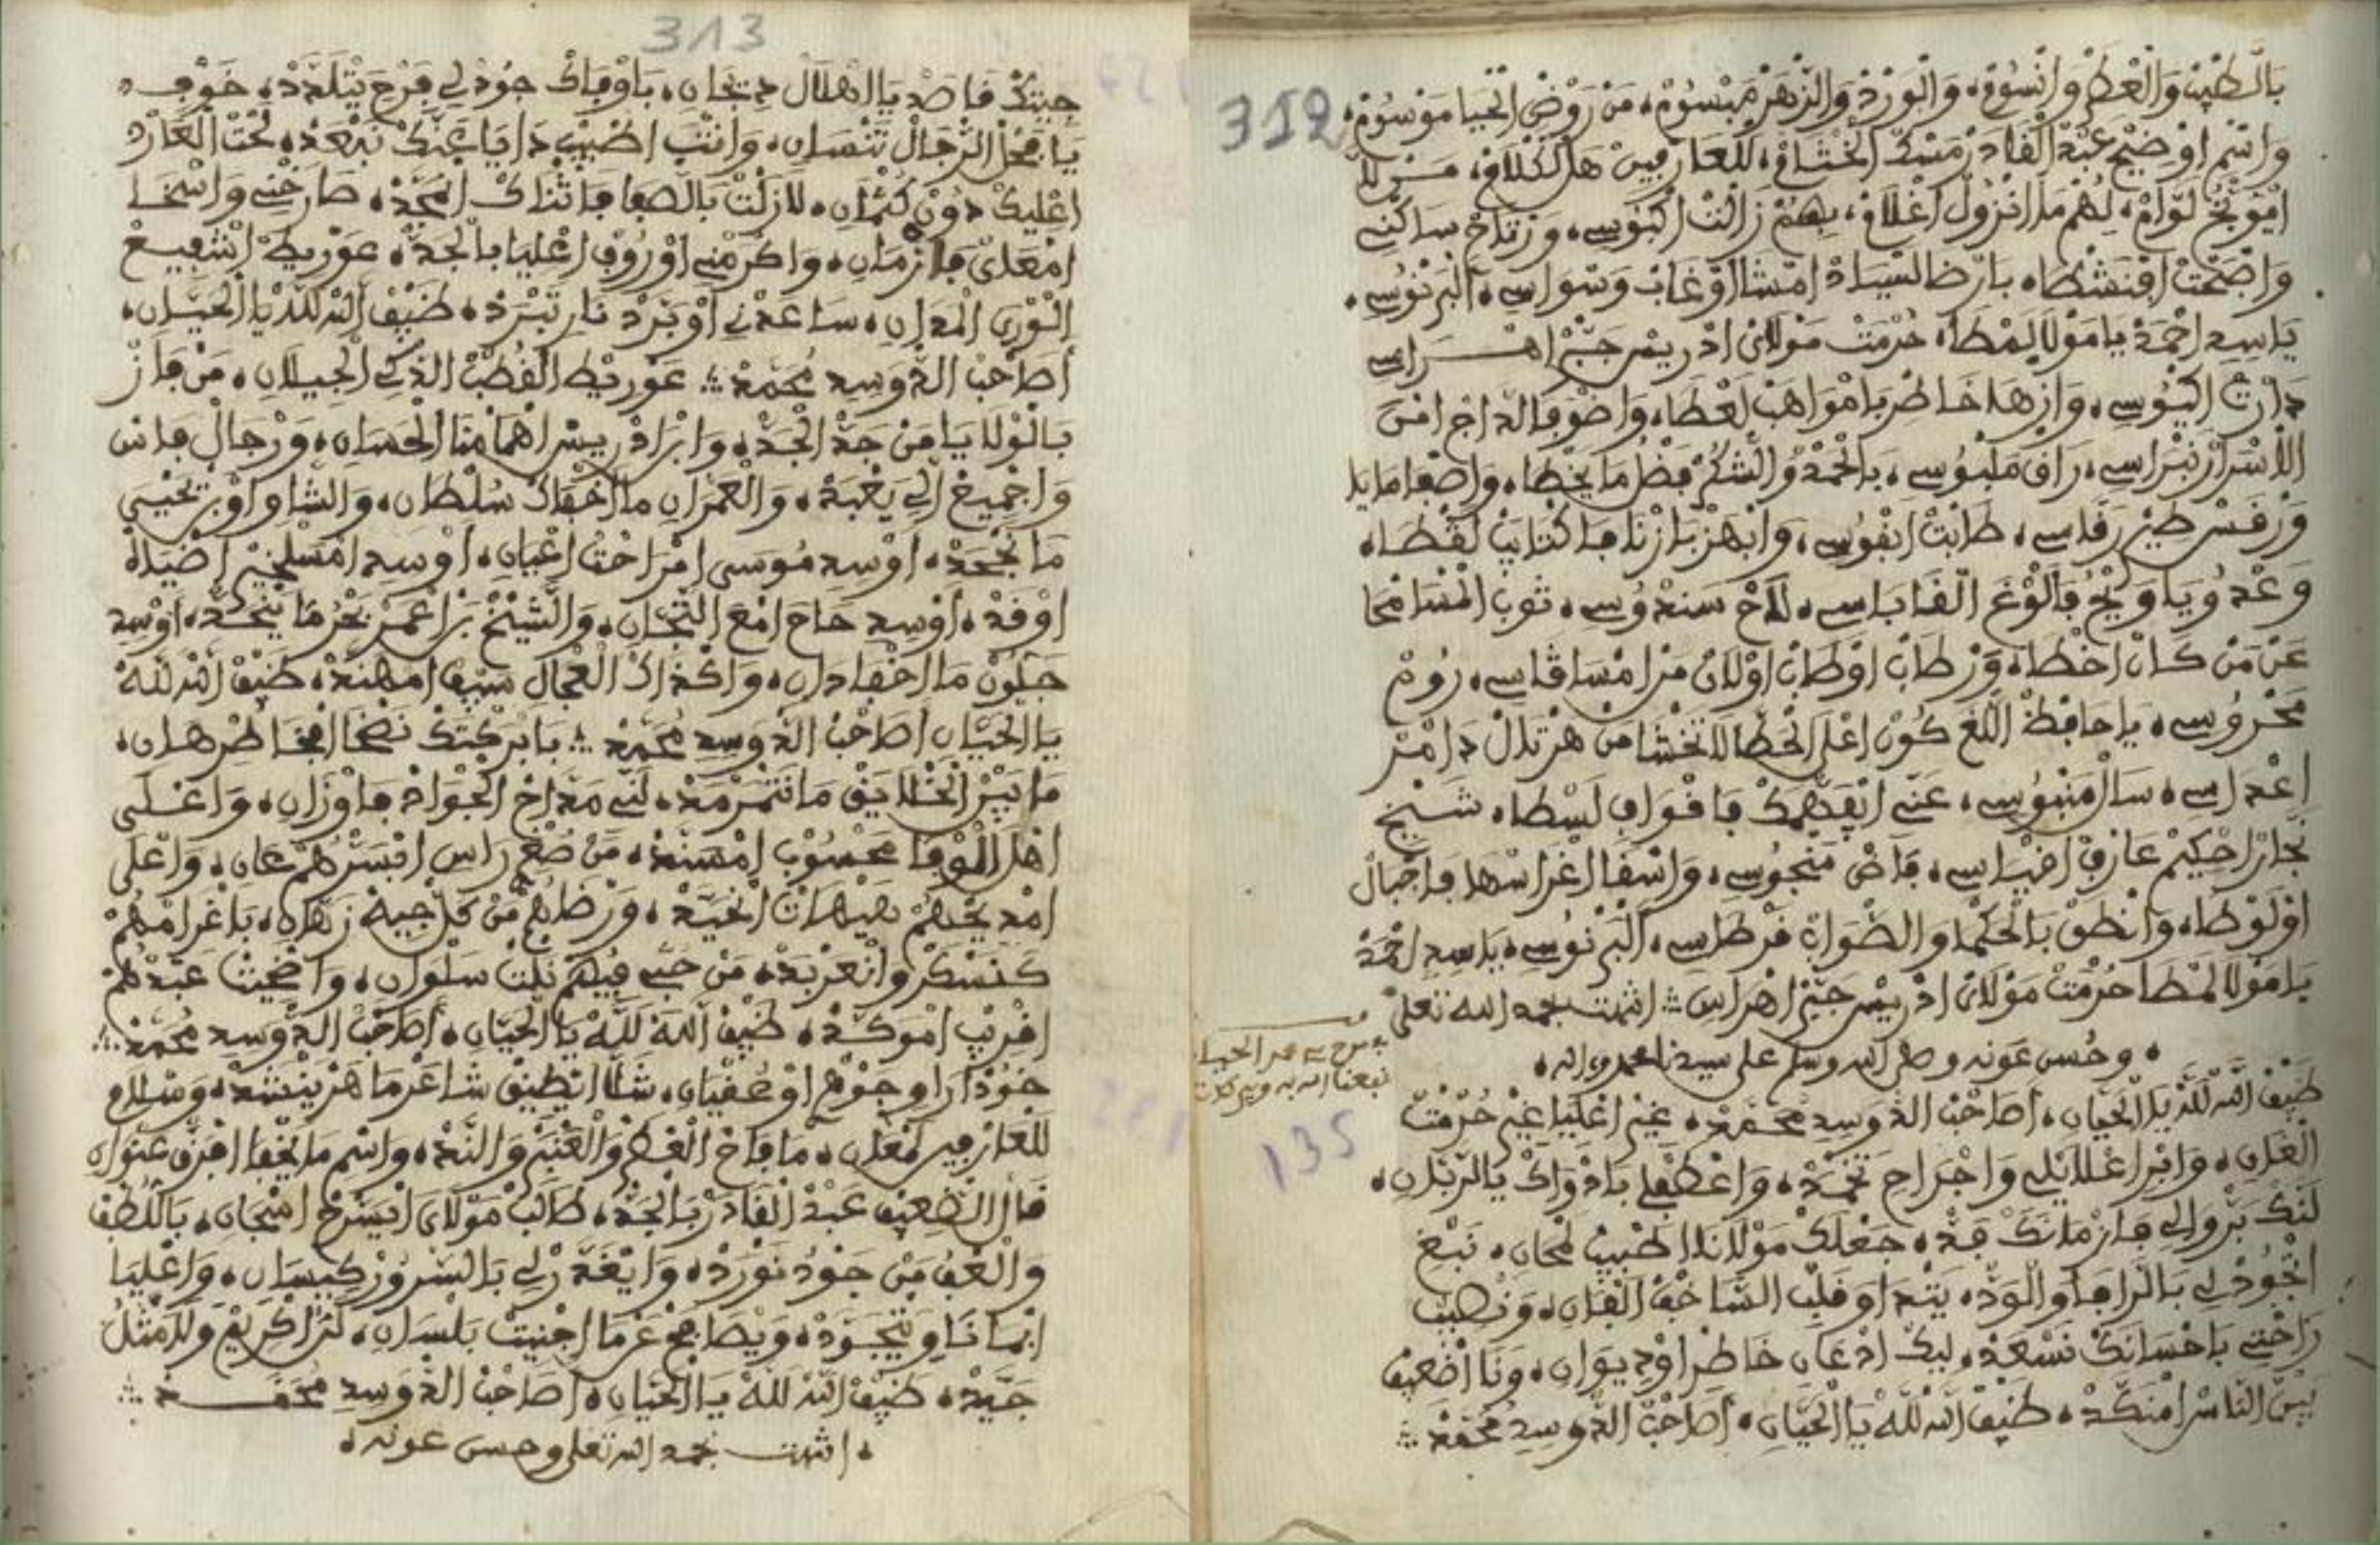 312
بالطيب والعطر وانسوم، والورد والزهر مبسوم، من روض الحيا موسوم،
واسم اوضيح عبد القادر مسك الختام، للعارفين هل الكلام،
امونخ لوام، لهم ما انزول اغلام، بهم زالت اكبوسي، وزتاح ساكني
واضحت افنشطا، بارضا السياد امشا اوغاب وسواسي، البرنوسي،
ياسيد احمد يا مولا لمطا، حرمت مولاي ادريس حبر اهراسي
دارت البوسي، وازها خاطر بامواهب لعطا، واضوا الداج امن
الاسرار نبراسي، راق ملبوسي، بالحمد والشكر فضل ما يخطا، واصفا مايا
ورفس طير رفاسي، طابت انفوسي، وابهز بازنا فاكتايب لقطا،
وعدو ياويح فالوغ القاباسي، لاح سندوسي، ثوب المسامحا
عن من كان اخطا، ورطاب اوطاب اولان من امساقاسي، روم
محروسي، يا حافظ اللغ كون اعلى الخطا لا تخشا من هرتال دامر
اعداسي، سال منبوسي، عني انفهمك فاقواف لسطا، شيخ
نجار احكيم عارف افياسي، فاض منجوسي، واسقا اغراسها فاجبال
اولوطا، وانطق بالحكما والصواب فرطاسي، البرنوسي، ياسيد احمد
يا مولا لمطا حرمت مولاي ادريس حبر اهراس ؞ انتهت بحمد الله تعلى
، وحسن عونه وصلى الله وسلم على سيدنا محمد واله،
نبعنا الله به وببركات
135
طيف الله لله يا الحيان، اصاحب الذو سيد محمد، غير اغليا غير حرمت
العلان، وابرا اغلايلي واجراح تخمد، واعطفلي بادواك يا الربان،
لنك بروالي فازمانك فد، جعلك مولانا اطبيب لمحان، نبغ
اتجود لي بالرافا والود، يتداو قلب الشاحف الفان، ونطيب
راحتي باحسانك نسعد، ليك ادعان خاطر اوديوان، ونا اضعيف
بين الناس امنكد، طيف الله لله يا الحيان، اصاحب الذو سيد محمد ؞
313
جيتك قاصد يا الهلال دتجان، باوفاك جودلي فرح يتلدد، خوف
يا فحل الرجال تنسان، وانت اطبيب دايا عنك نبعد، لحت العار
اعليك دون كثمان، لازلت بالصفا فاثناك انمجد، صارخني واسخا
امعاي فازمان، واكرمني اوروف اعليا بالجد، عوريط اشفيع
الورى المدان، ساعدني اوبرد نار تبرد، طيف الله لله يا الحيان،
اصاحب الذو سيد محمد ؞ عوريط القطب الذكي الجيلان، من فاز
بالولايا من جد الجد، وابرادريس اهمامنا الحسان، ورجال فاس
واجميع الي يغبد، والعمران ما اخفاك سلطان، والشاو اوبنيحيى
ما نجحد، اوسيد موسى امراحت اعيان، اوسيد امسلخير اضياه
اوقد، اوسيد حاج امع التجان، والشيخ بزاعمر بحر ما يتحد، اوسيد
جلون ما اخفا دان، واكذاك العجال سيف امهند، طيف الله لله
يا الحيان اصاحب الذو سيد محمد ؞ بابركتك نضحا افخاطر هدان،
ما بين الخلايق ما نتمرمد، لني مداح الجواد فاوزان، واعلى
اهل الوفا محسوب امسند، من صغر راس افسترهم عان، واعلى
امديحهم هيهات انحيد، ورضاهم من كل جيه زهان، باغرامهم
كنسكر وانعربد، من حبي فيهم نلت سلوان، واضحيت عبدهم
افريب اموكد، طيف الله لله يا الحيان، اصاحب الذو سيد محمد ؞
خود اراو جوهر اوعفيان، شلا انطيق شاعر ما هر ينشد، وسلام
للعارفين لمعان، ما فاح العطر والعنبر والند، واسم ما يخفا افرق عنوان
قال الضعيف عبد القادر بالجد، طالب مولاي ايسرح اسجان، باللطف
والعف من جود نورد، وايغد رلي بالسرور كيسان، واعليا
ابما نا و يتجود، ويصامح عز ما اجنيت بلسان، لنا كريم ولا مثلو
جيد، طيف الله لله يا الحيان، اصاحب الذو سيد محمد ؞
، انتهت بحمد الله تعلى وحسن عونه،